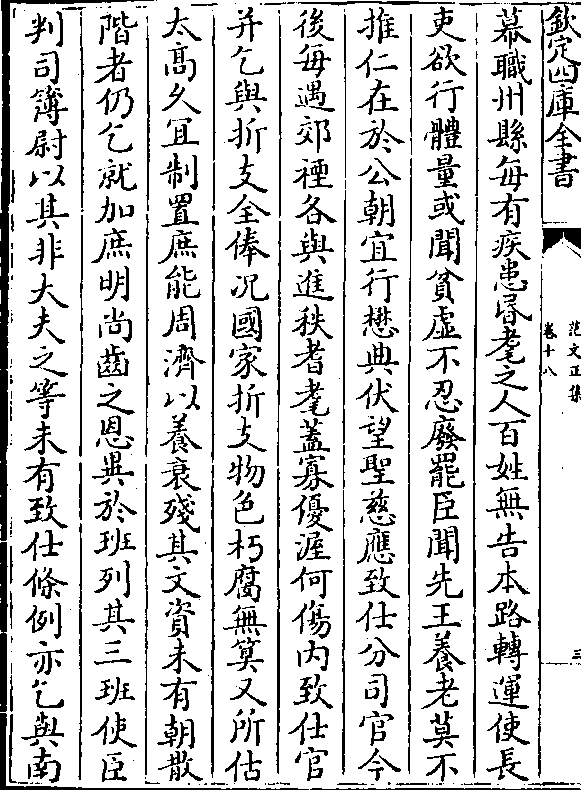 欽定四庫全書
范文正集
卷十八
三
幕職州縣每有疾患昬耄之人百姓無告本路轉運使長
吏欲行體量或聞貧虛不忍廢罷臣聞先王養老莫不
推仁在於公朝宜行懋典伏望聖慈應致仕分司官今
後每遇郊禋各與進秩耆耄蓋寡優渥何傷内致仕官
并乞與折支全俸况國家折支物色朽腐無算又所估
太高久冝制置庶能周濟以養衰殘其文資未有朝散
階者仍乞就加庶明尚齒之恩異於班列其三班使臣
判司簿尉以其非大夫之等未有致仕條例亦乞與南